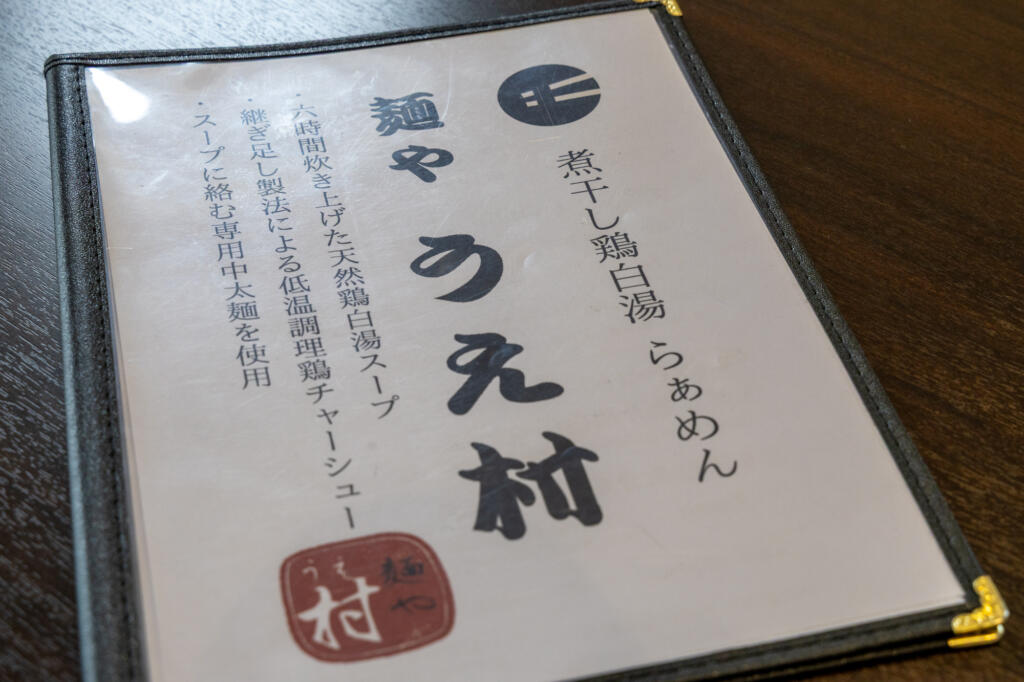 煮干し鶏白湯 らぁめん
麺や うえ村
・六時間炊き上げた天然鶏白湯スープ
・継ぎ足し製法による低温調理鶏チャーシュー
・スープに絡む専用中太麺を使用
麺や
うえ
村